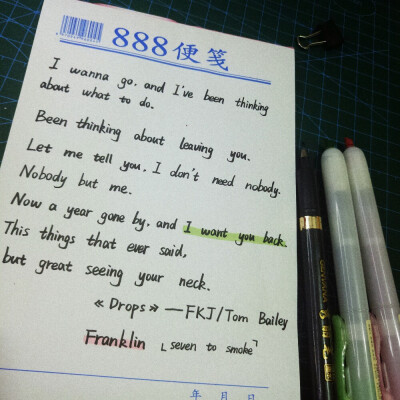 888便笺
I wanna go, and I've been thinking
about what to do.
Been thinking about leaving you.
Let me tell you, I don't need nobody.
Nobody but me.
Now a year gone by, and I want you back.
This things that ever said,
but great seeing your neck.
《Drops》—FKJ/Tom Bailey
Franklin 「seven to smoke」
年 月 日